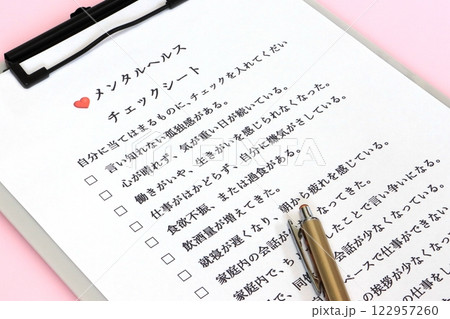 メンタルヘルス
チェックシート
自分に当てはまるものに、チェックを入れてくだい
言い知れない孤独感がある。
心が晴れず、気が重い日が続いている。
働きがいや、生きがいを感じられなくなった。
仕事がはかどらず、自分に嫌気がさしている。
食欲不振、または過食がある。
飲酒量が増えてきた。
就寝が遅くなり、朝から疲れを感じている。
家庭内の会話が なってきた。
家庭内で、ち ったことで言い争いになる。
で、同僚 会話が少なくなっている。
ペースで仕事ができない
の挨拶が少なく
の仕事をし
pixta
122957260